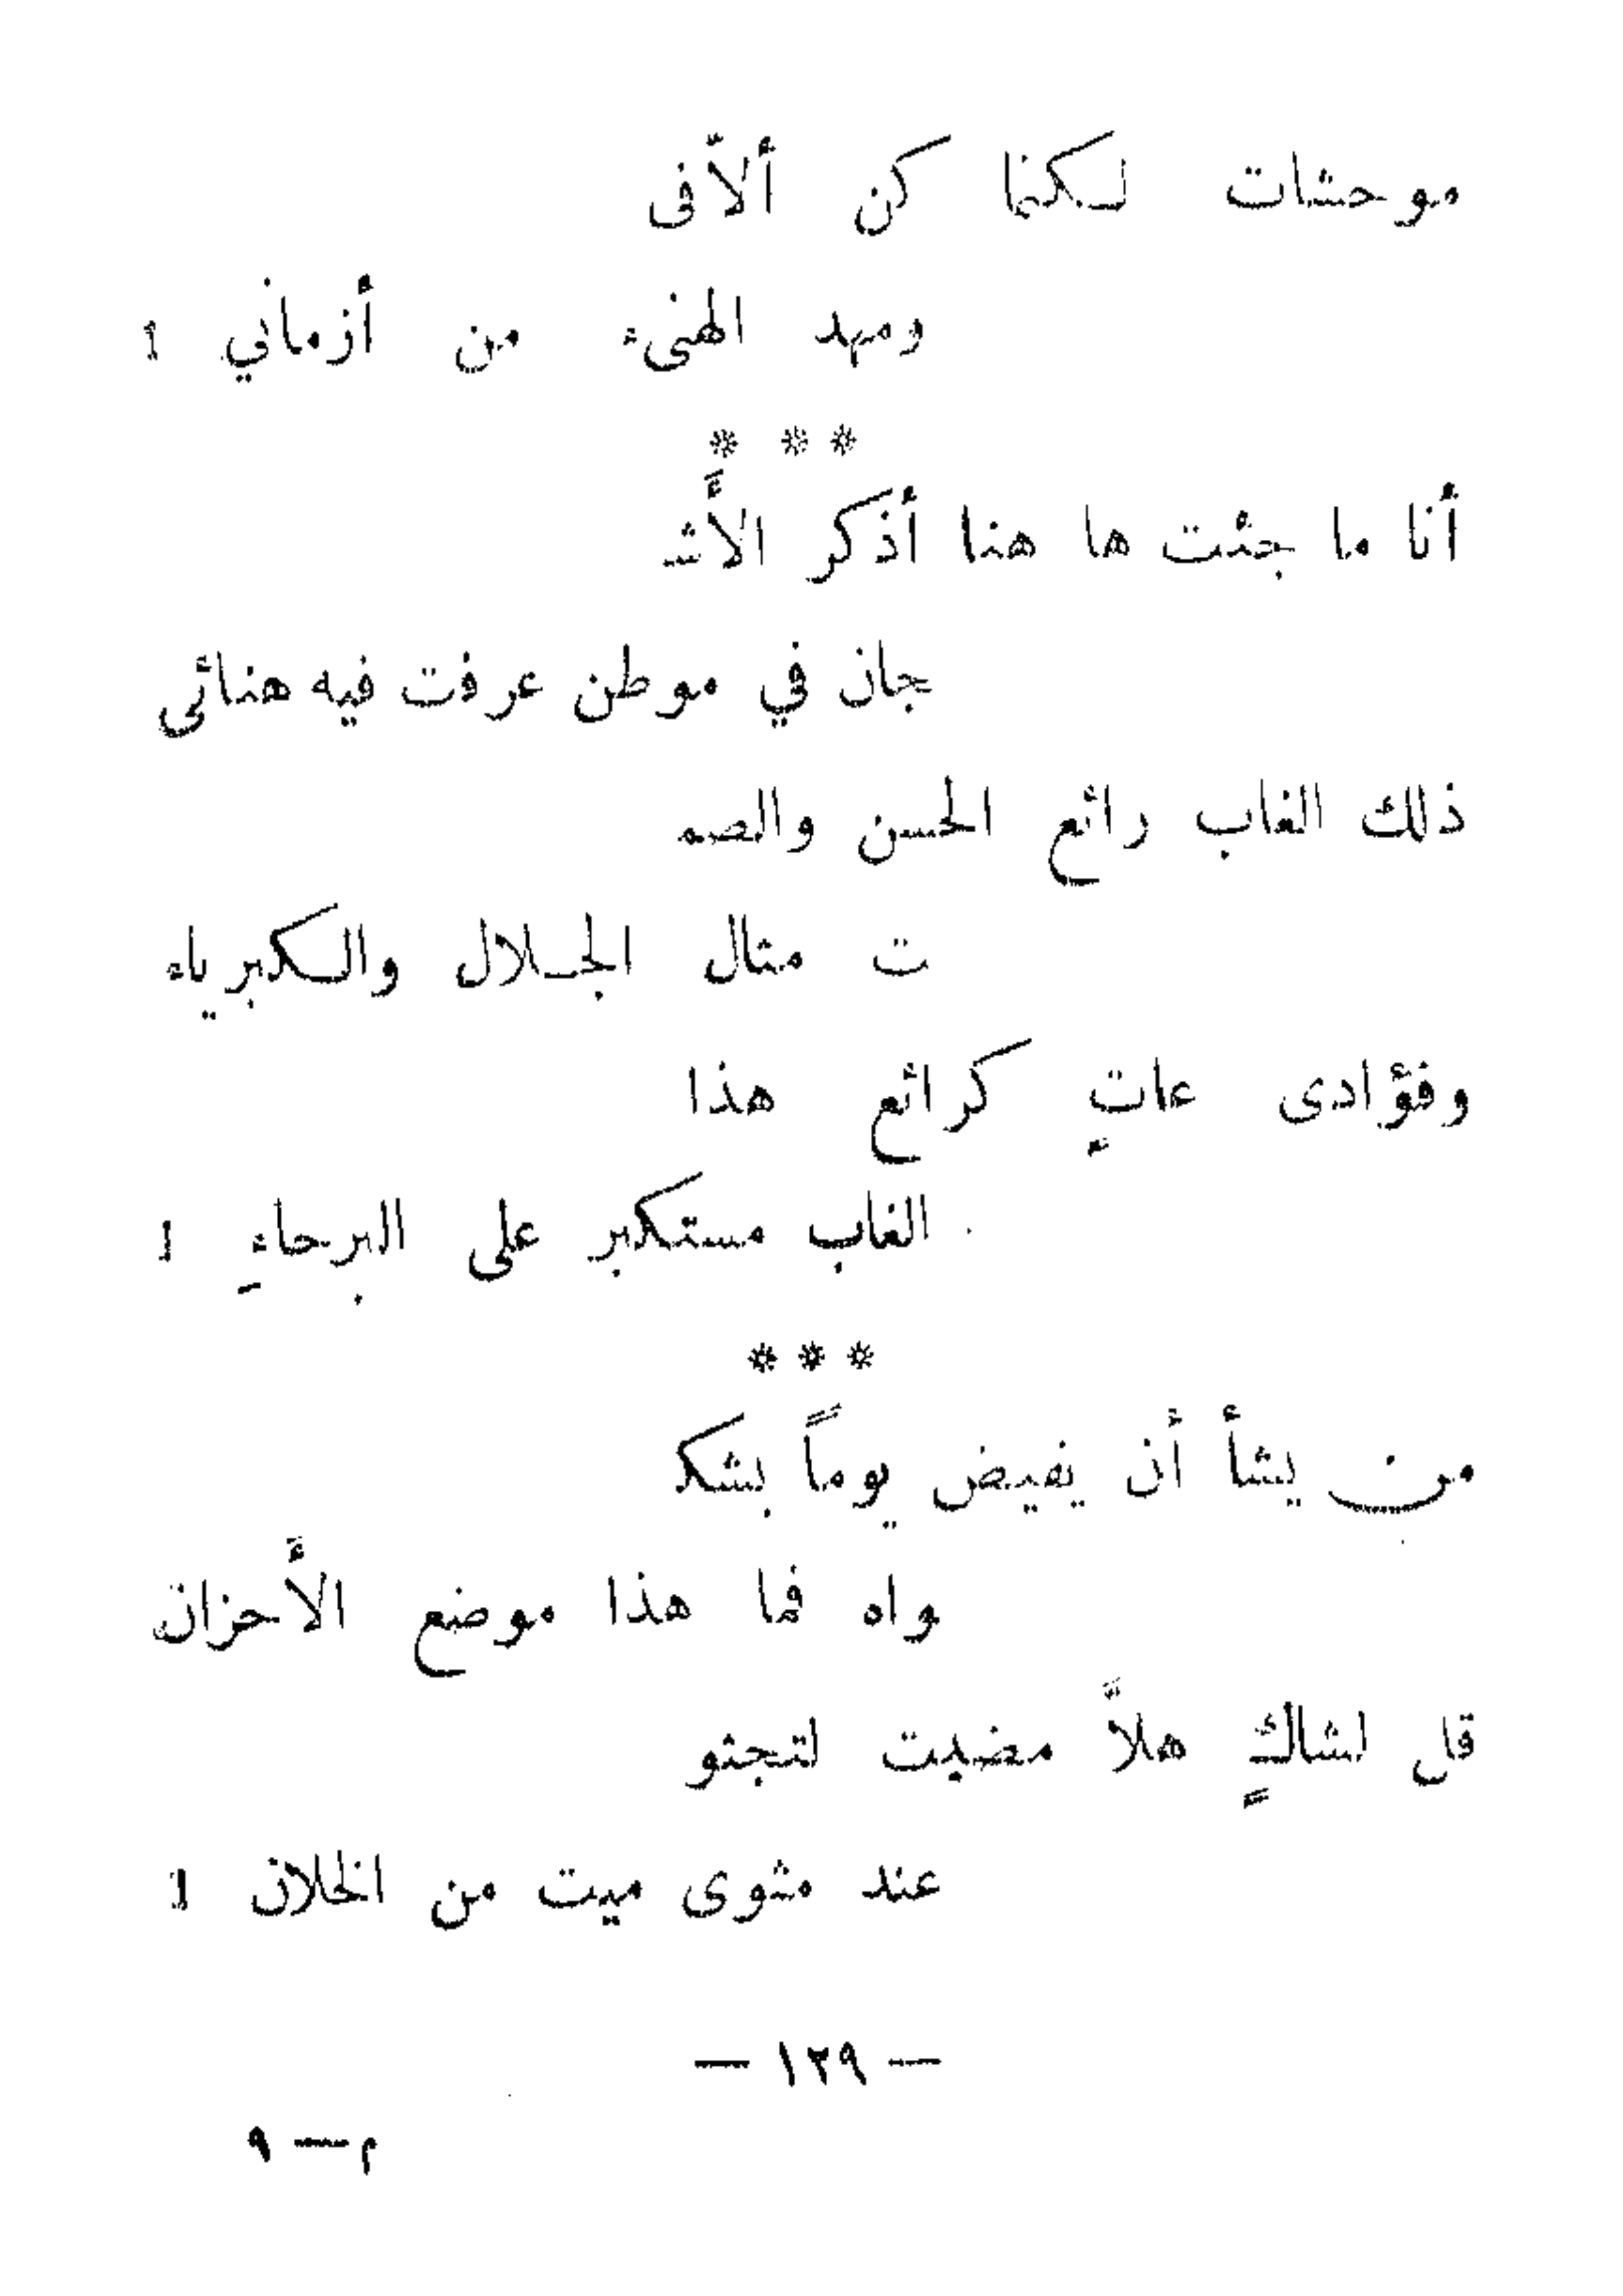 موحشات لكنما كن ألاّفى
ومهد الهنىء من أزماني !
* * *
أنا ما جئت ها هنا أذكر الأَشـ
ـجان في موطن عرفت فيه هنائى
ذلك الغاب رائع الحسن والصمـ
ـت مثال الجلال والكبرياء
وفؤادى عاتٍ كرائع هذا
الغاب مستكبر على البرحاءِ !
* * *
من يشأ أن يفيض يوماً بشكـ
ـواه فما هذا موضع الأَحزان
قل لشاكٍ هلاَّ مضيت لتجثو
عند مثوى ميت من الخلان !
— ١٢٩ —
م — ٩